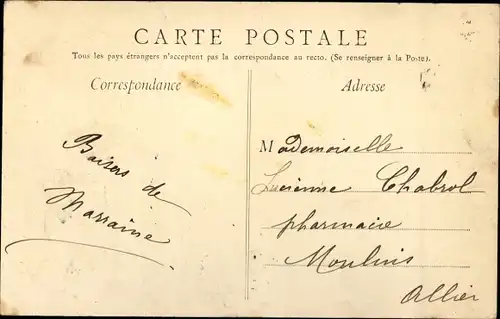 CARTE POSTALE
Tous les pays étrangers n'acceptent pas la correspondance au recto. (Se renseigner à la Poste).
Correspondance
Baisers de
Marraine
Adresse
Mademoiselle
Lucienne Chabrol
pharmacie
Moulins
Allier